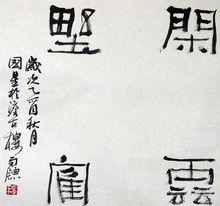 閑雲
野隺
歲次乙酉秋月
國星於澹古樓南牕